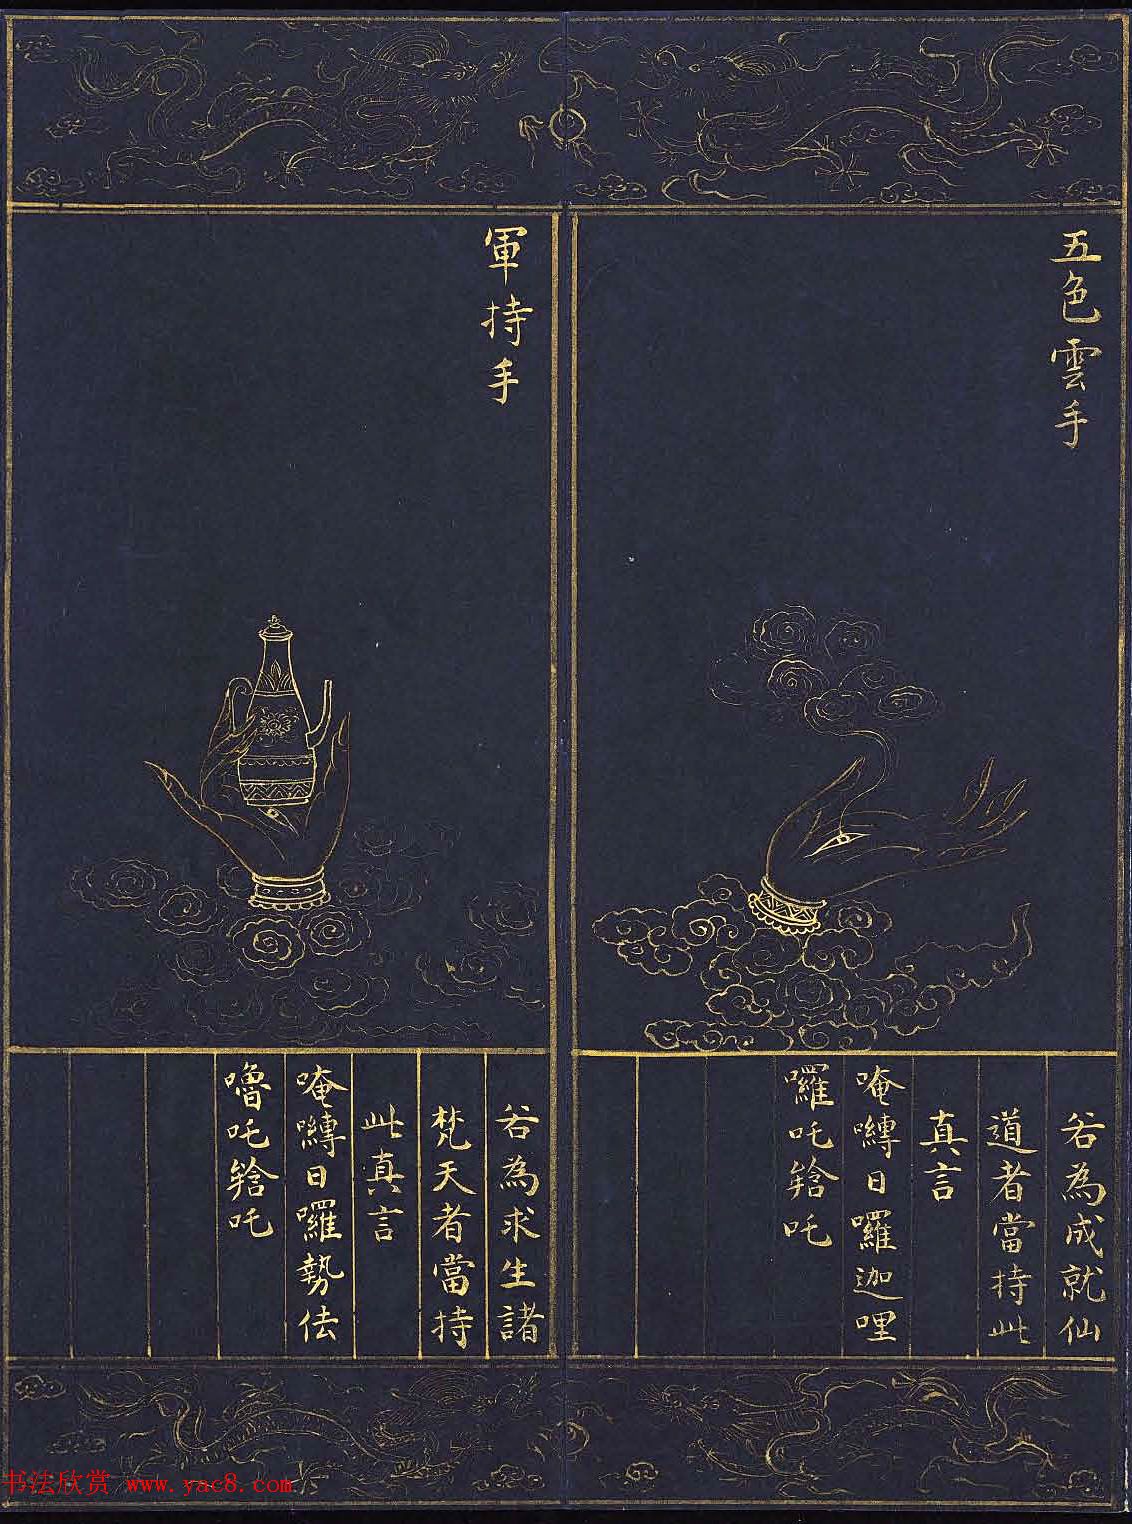 五色雲手
若為成就仙
道者當持此
真言
唵嚩日囉迦哩
囉吒𤚥吒
軍持手
若為求生諸
梵天者當持
此真言
唵嚩日囉勢佉
嚕吒𤚥吒
书法欣赏 www.yac8.com